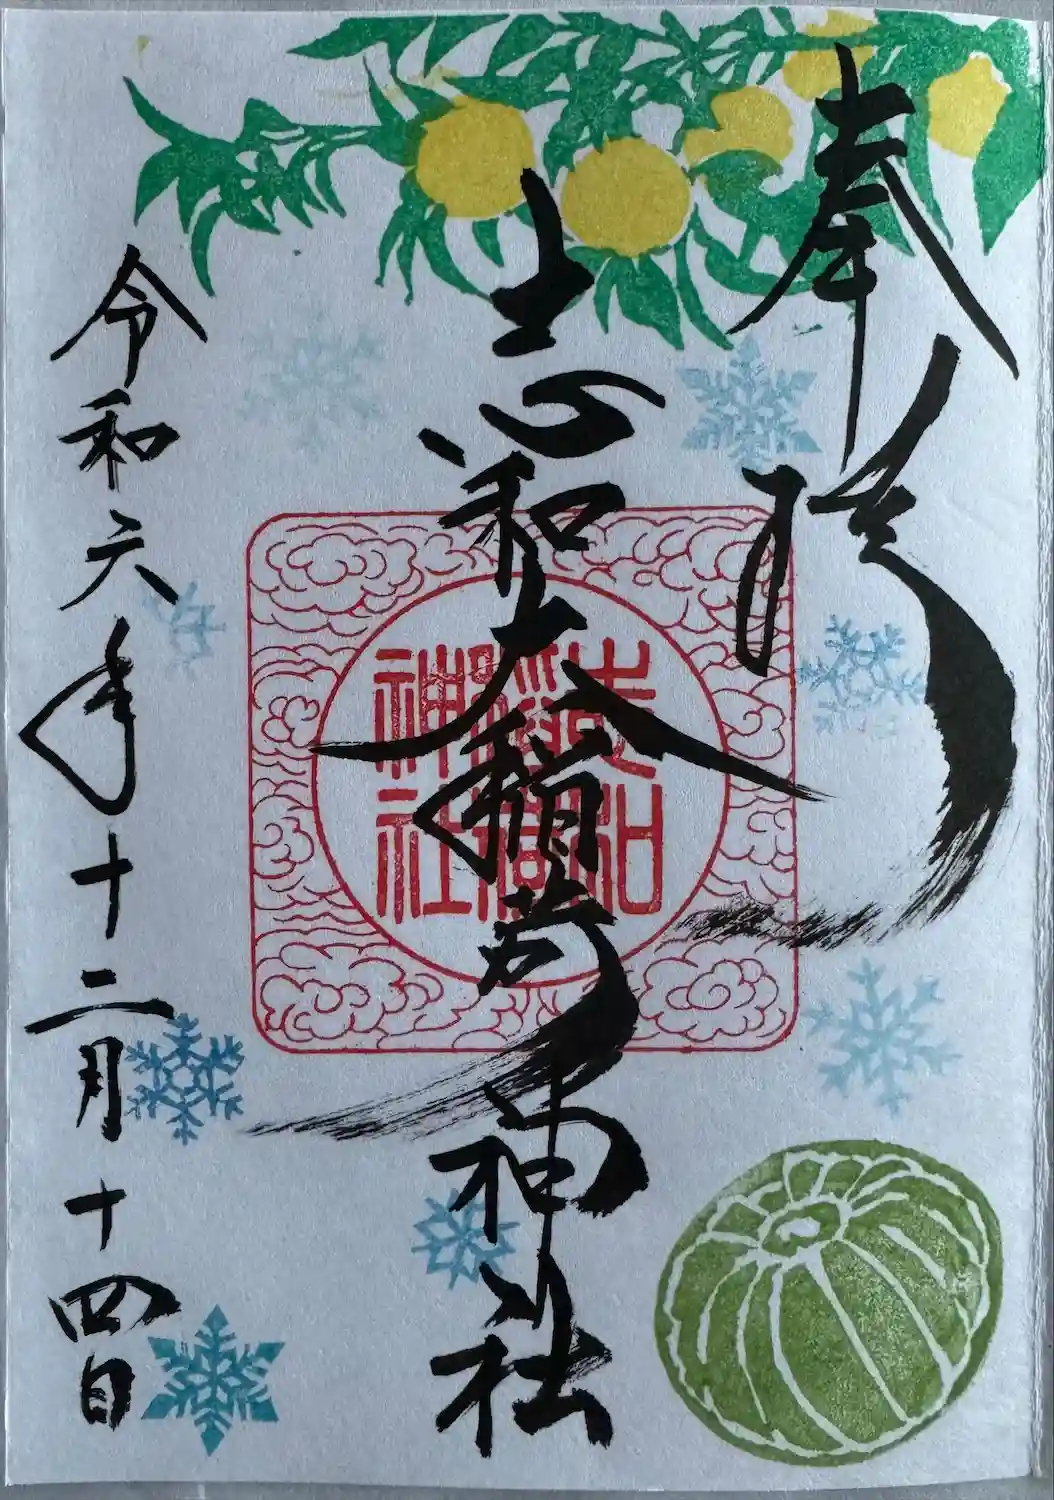 奉拝
志和稲荷神社
志和
稲荷
神社
令和六年十二月十四日